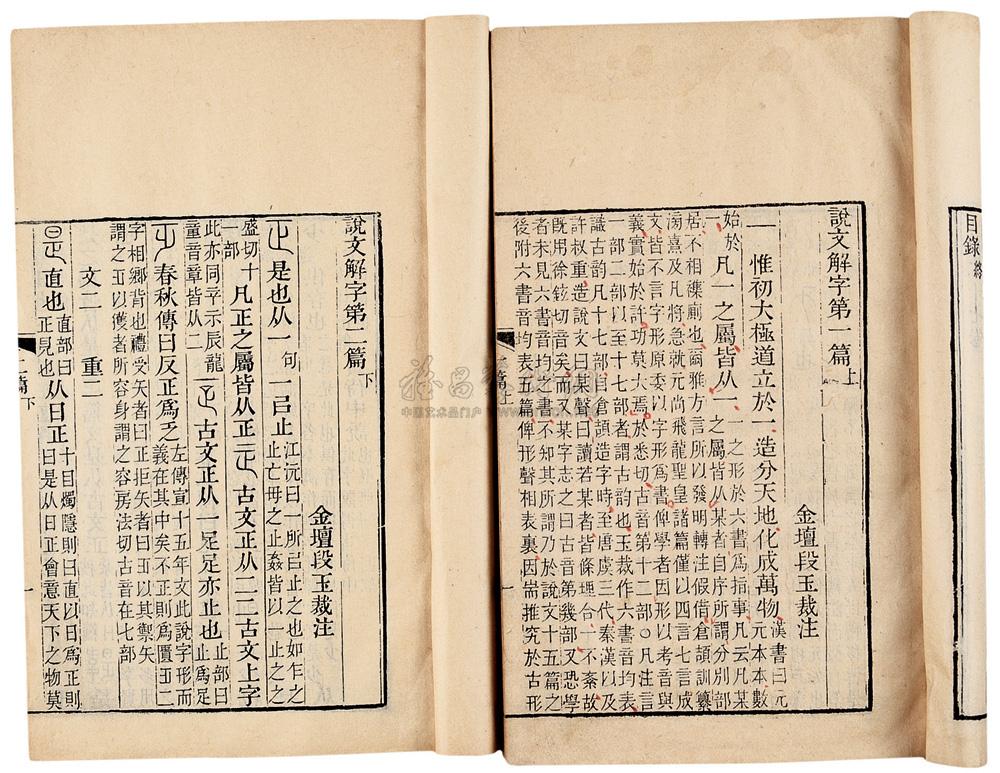 目錄終
說文解字第一篇上
金壇段玉裁注
一惟初大極道立於一造分天地化成萬物漢書曰元
元本本數
始於一凡一之屬皆从一一之形於六書爲指事凡云凡某
之屬皆从某者自序所謂分別部
居不相襍廁也爾雅方言所以發明轉注假借倉頡訓纂
滂熹及凡將急就元尚飛龍聖皇諸篇僅以四言七言成
文皆不言字形原委以字形爲書俾學者因形以考音與
義實始於許功莫大焉於悉切古音第十二部○凡注言
一部二部以至十七部者謂古韵也玉裁作六書音均表
識古韵凡十七部自倉頡造字時至唐虞三代秦漢以及
許叔重造說文曰某聲曰讀若某者皆條理合一不紊故
既用徐鉉切音矣而又某字志之曰古音第幾部又恐學
者未見六書音均之書不知其所謂乃於說文十五篇之
後附六書音均表五篇俾形聲相表裏因耑推究於古形
篇上
說文解字第二篇下
金壇段玉裁注
正是也从一句一㠯止江沅曰一所㠯止之也如乍之
止亡毋之止姦皆以一止之之
盛切十
一部
凡正之屬皆从正古文正从二二古文上字
此亦同䇂示辰龍
童音章皆从二
古文正从一足足亦止也止部曰
止爲足
春秋傳曰反正爲乏左傳宣十五年文此說字形而
義在其中矣不正則爲匱乏二
字相鄉背也禮受矢者曰正拒矢者曰乏以其禦矢
謂之乏以獲者所容身謂之容房法切古音在七部
文二 重二
是直也直部曰
正見也
从日正十目燭隱則曰直以日爲正則
曰是从日正會意天下之物莫
二篇下
一